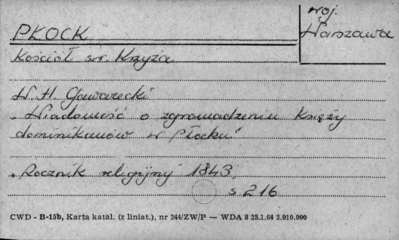 PŁOCK
woj.
Warszawa
Kościół św. Krzyża
W. H. Gawarecki
„Wiadomość o zgromadzeniu Księży
dominikanów w Płocku"
„Rocznik religijny 1843,
s 216
CWD - B-15b, Karta katal. (z liniat.), nr 244/ZW/P — WDA 8 25.1.64 2.010.000